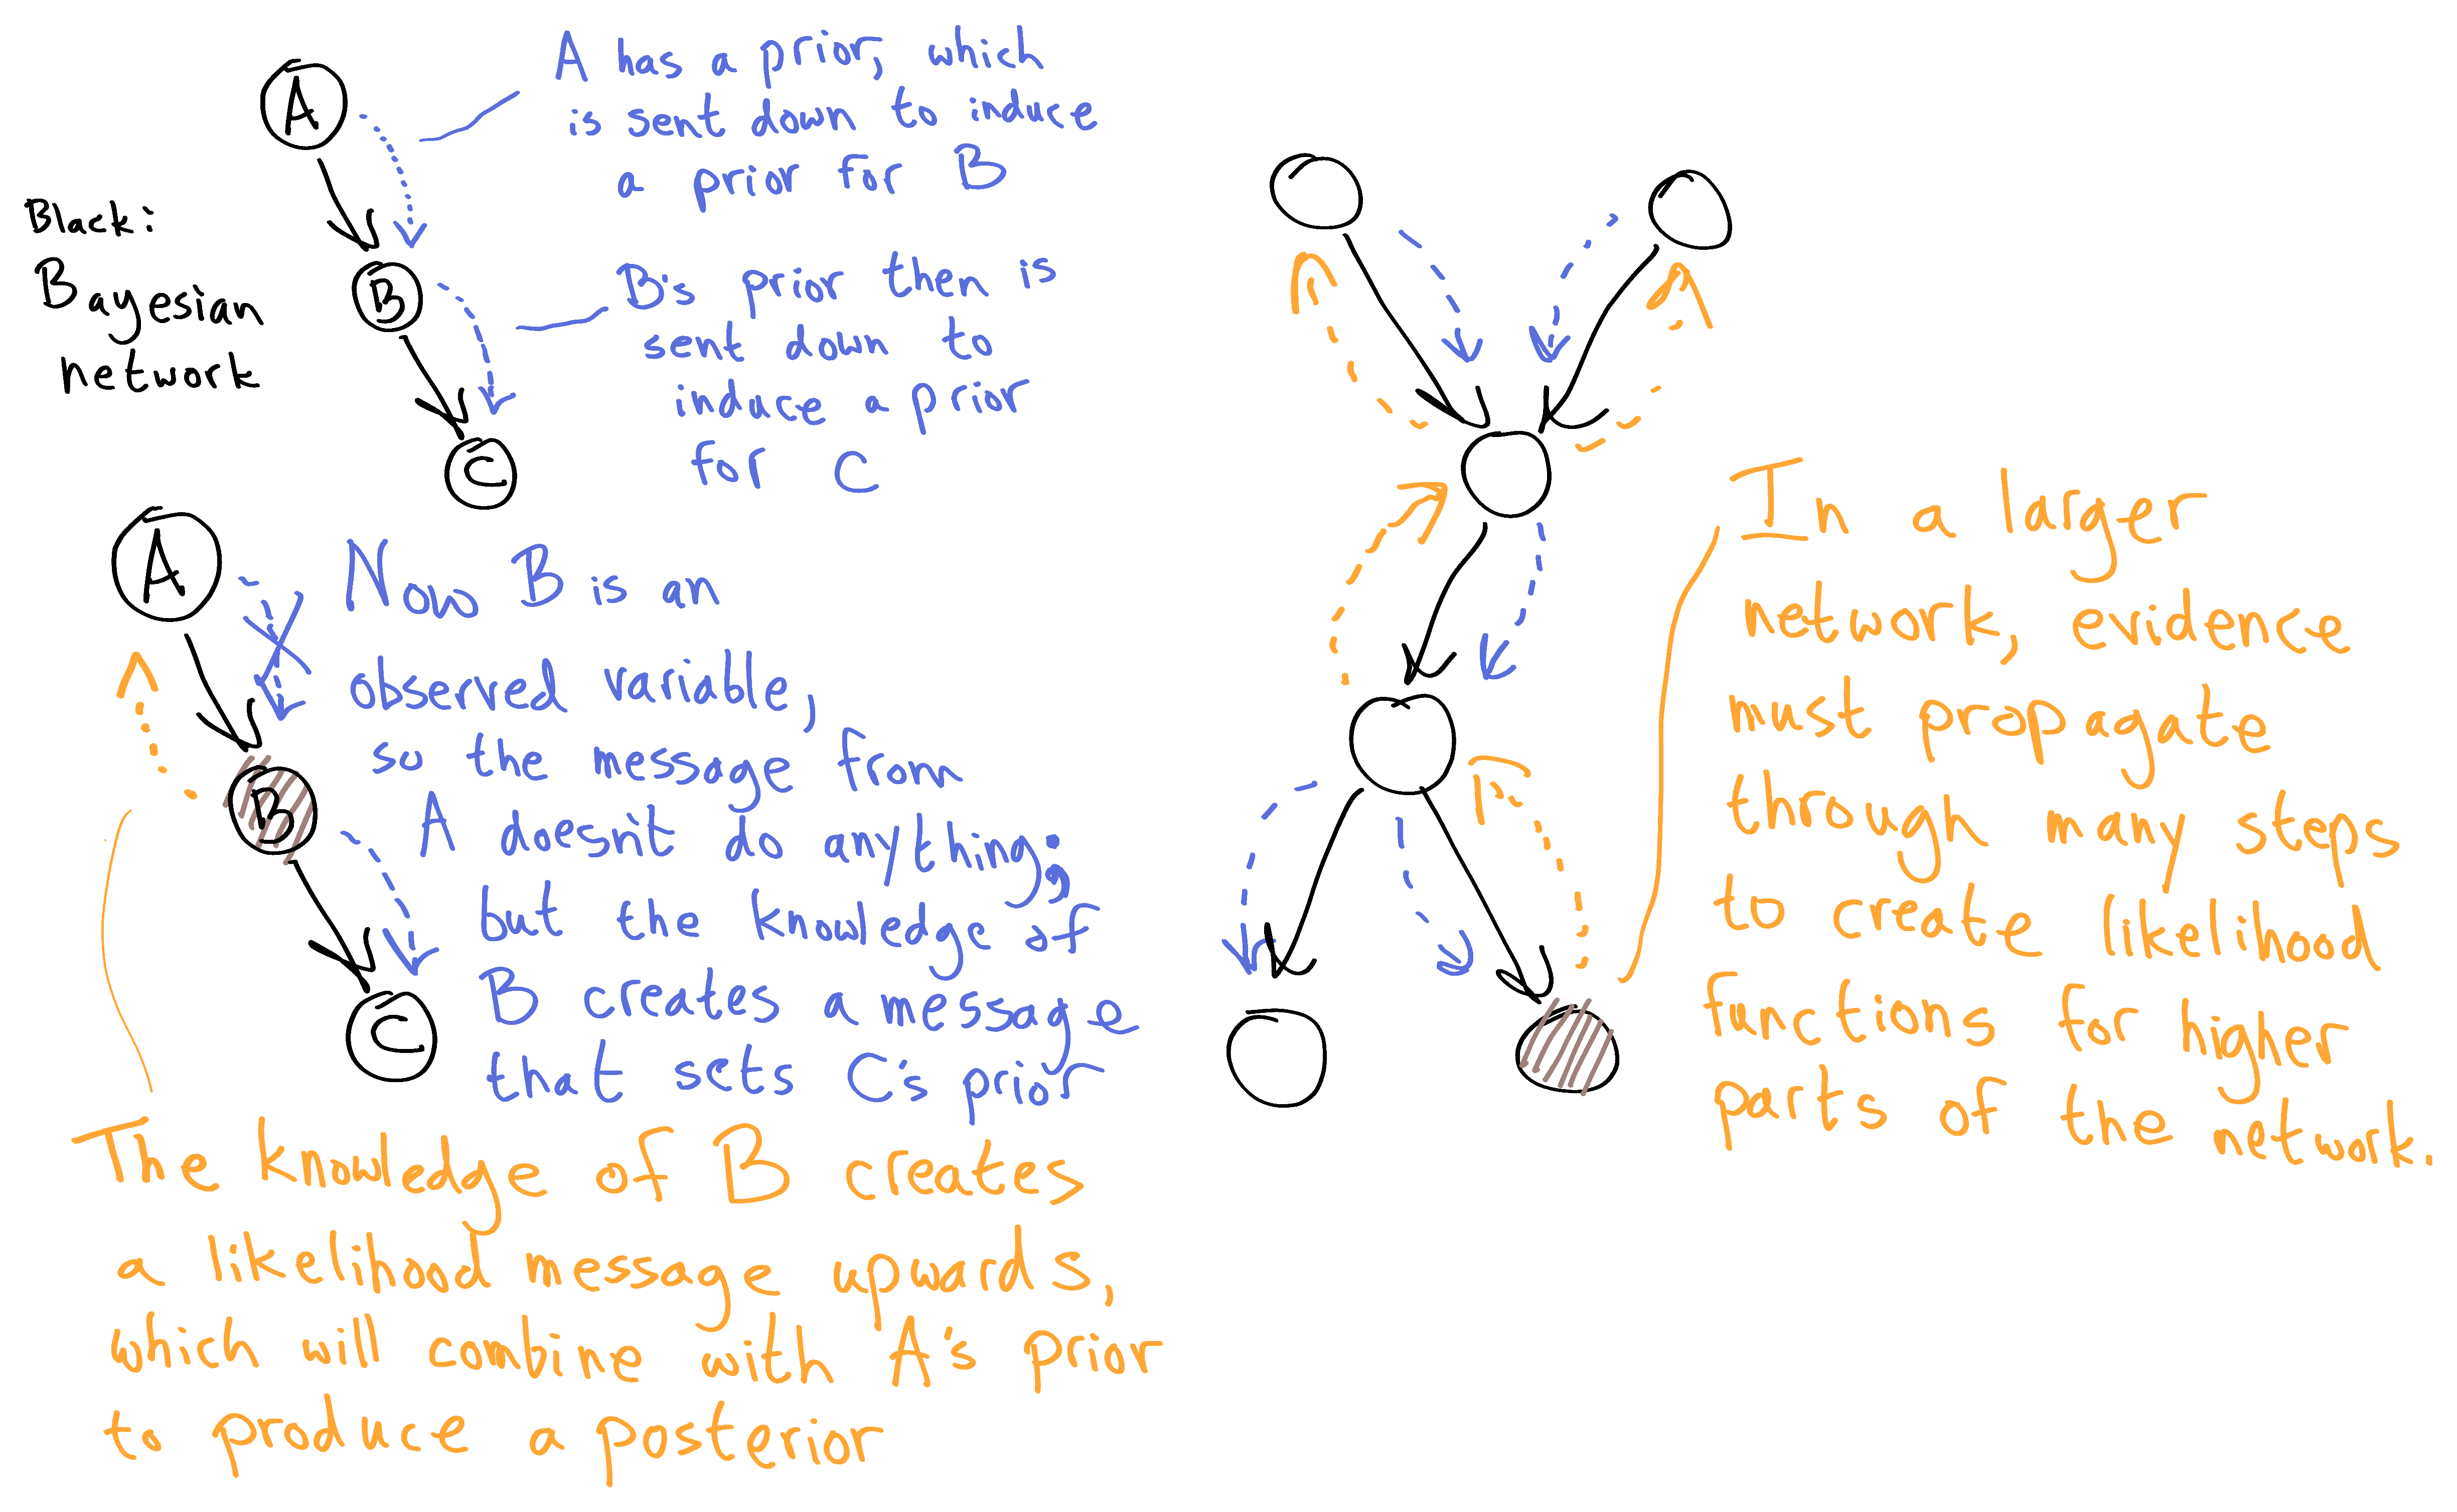 A
A has a prior, which
is sent down to induce
a prior for B
Black:
Bayesian
network
B
B's prior then is
sent down to
induce a prior
for C
C
A
Now B is an
observed variable,
so the message from
A doesn't do anything;
but the knowledge of
B creates a message
that sets C's prior
B
C
The knowledge of B creates
a likelihood message upwards,
which will combine with A's prior
to produce a posterior
In a larger
network, evidence
must propagate
through many steps
to create likelihood
functions for higher
parts of the network.